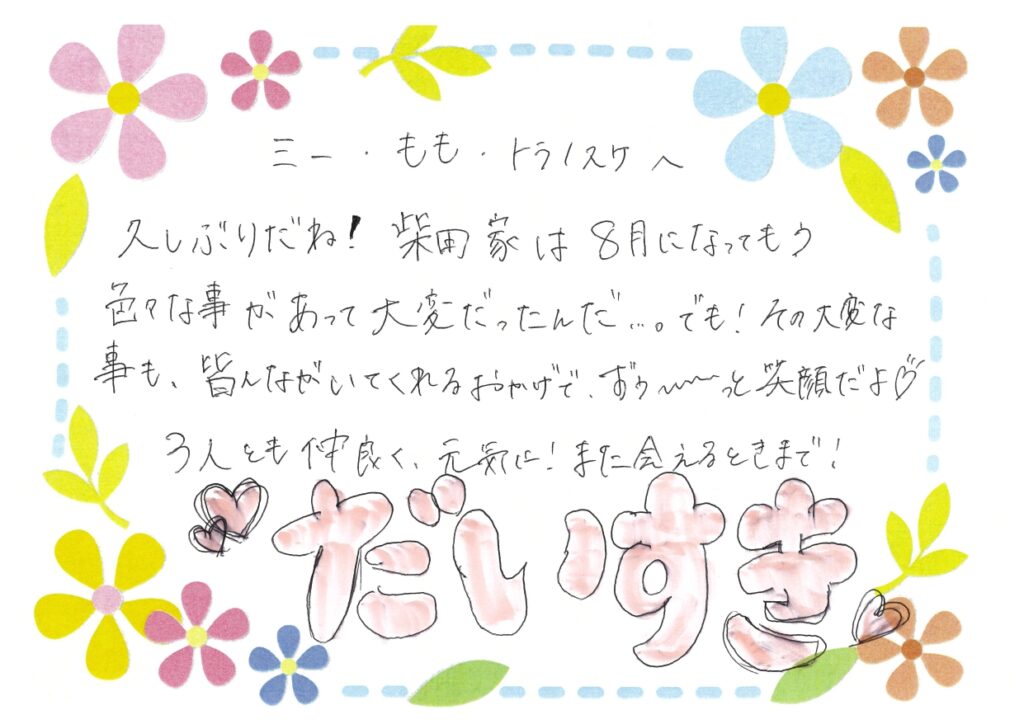 ミー・もも・トラノスケへ
久しぶりだね!柴田家は8月になってもう
色々な事があって大変だったんだ…。でも!その大変な
事も、皆んながいてくれるおかげで、ずぅ〜〜〜っと笑顔だよ♡
3人とも仲良く、元気に!また会えるときまで!
だいすき